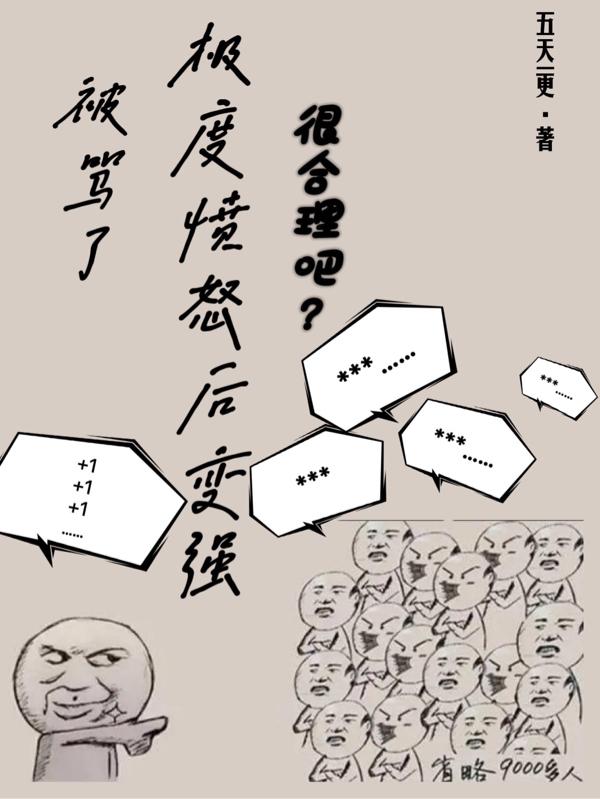 五天一更·著
被骂了
极度愤怒后变强
很合理吧？
***......
***......
***......
***
+1
+1
+1
......
省略9000多人